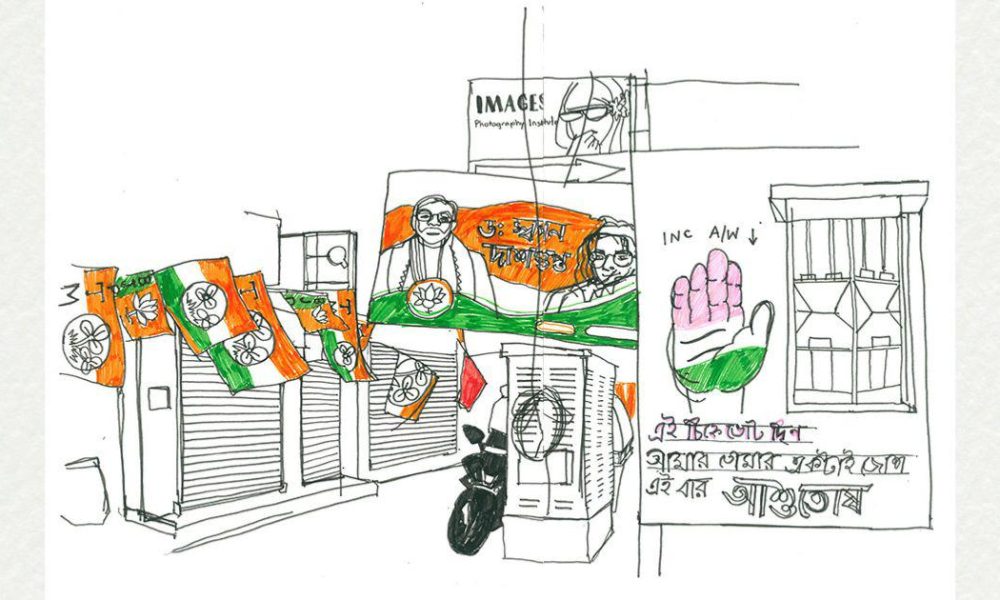 IMAGES
Photography Institute
ডঃ স্বপন
দাশগুপ্ত
INC A/W ↓
এই চিহ্নে ভোট দিন
আমার তোমার একটাই জোশ
এই বার আশুতোষ